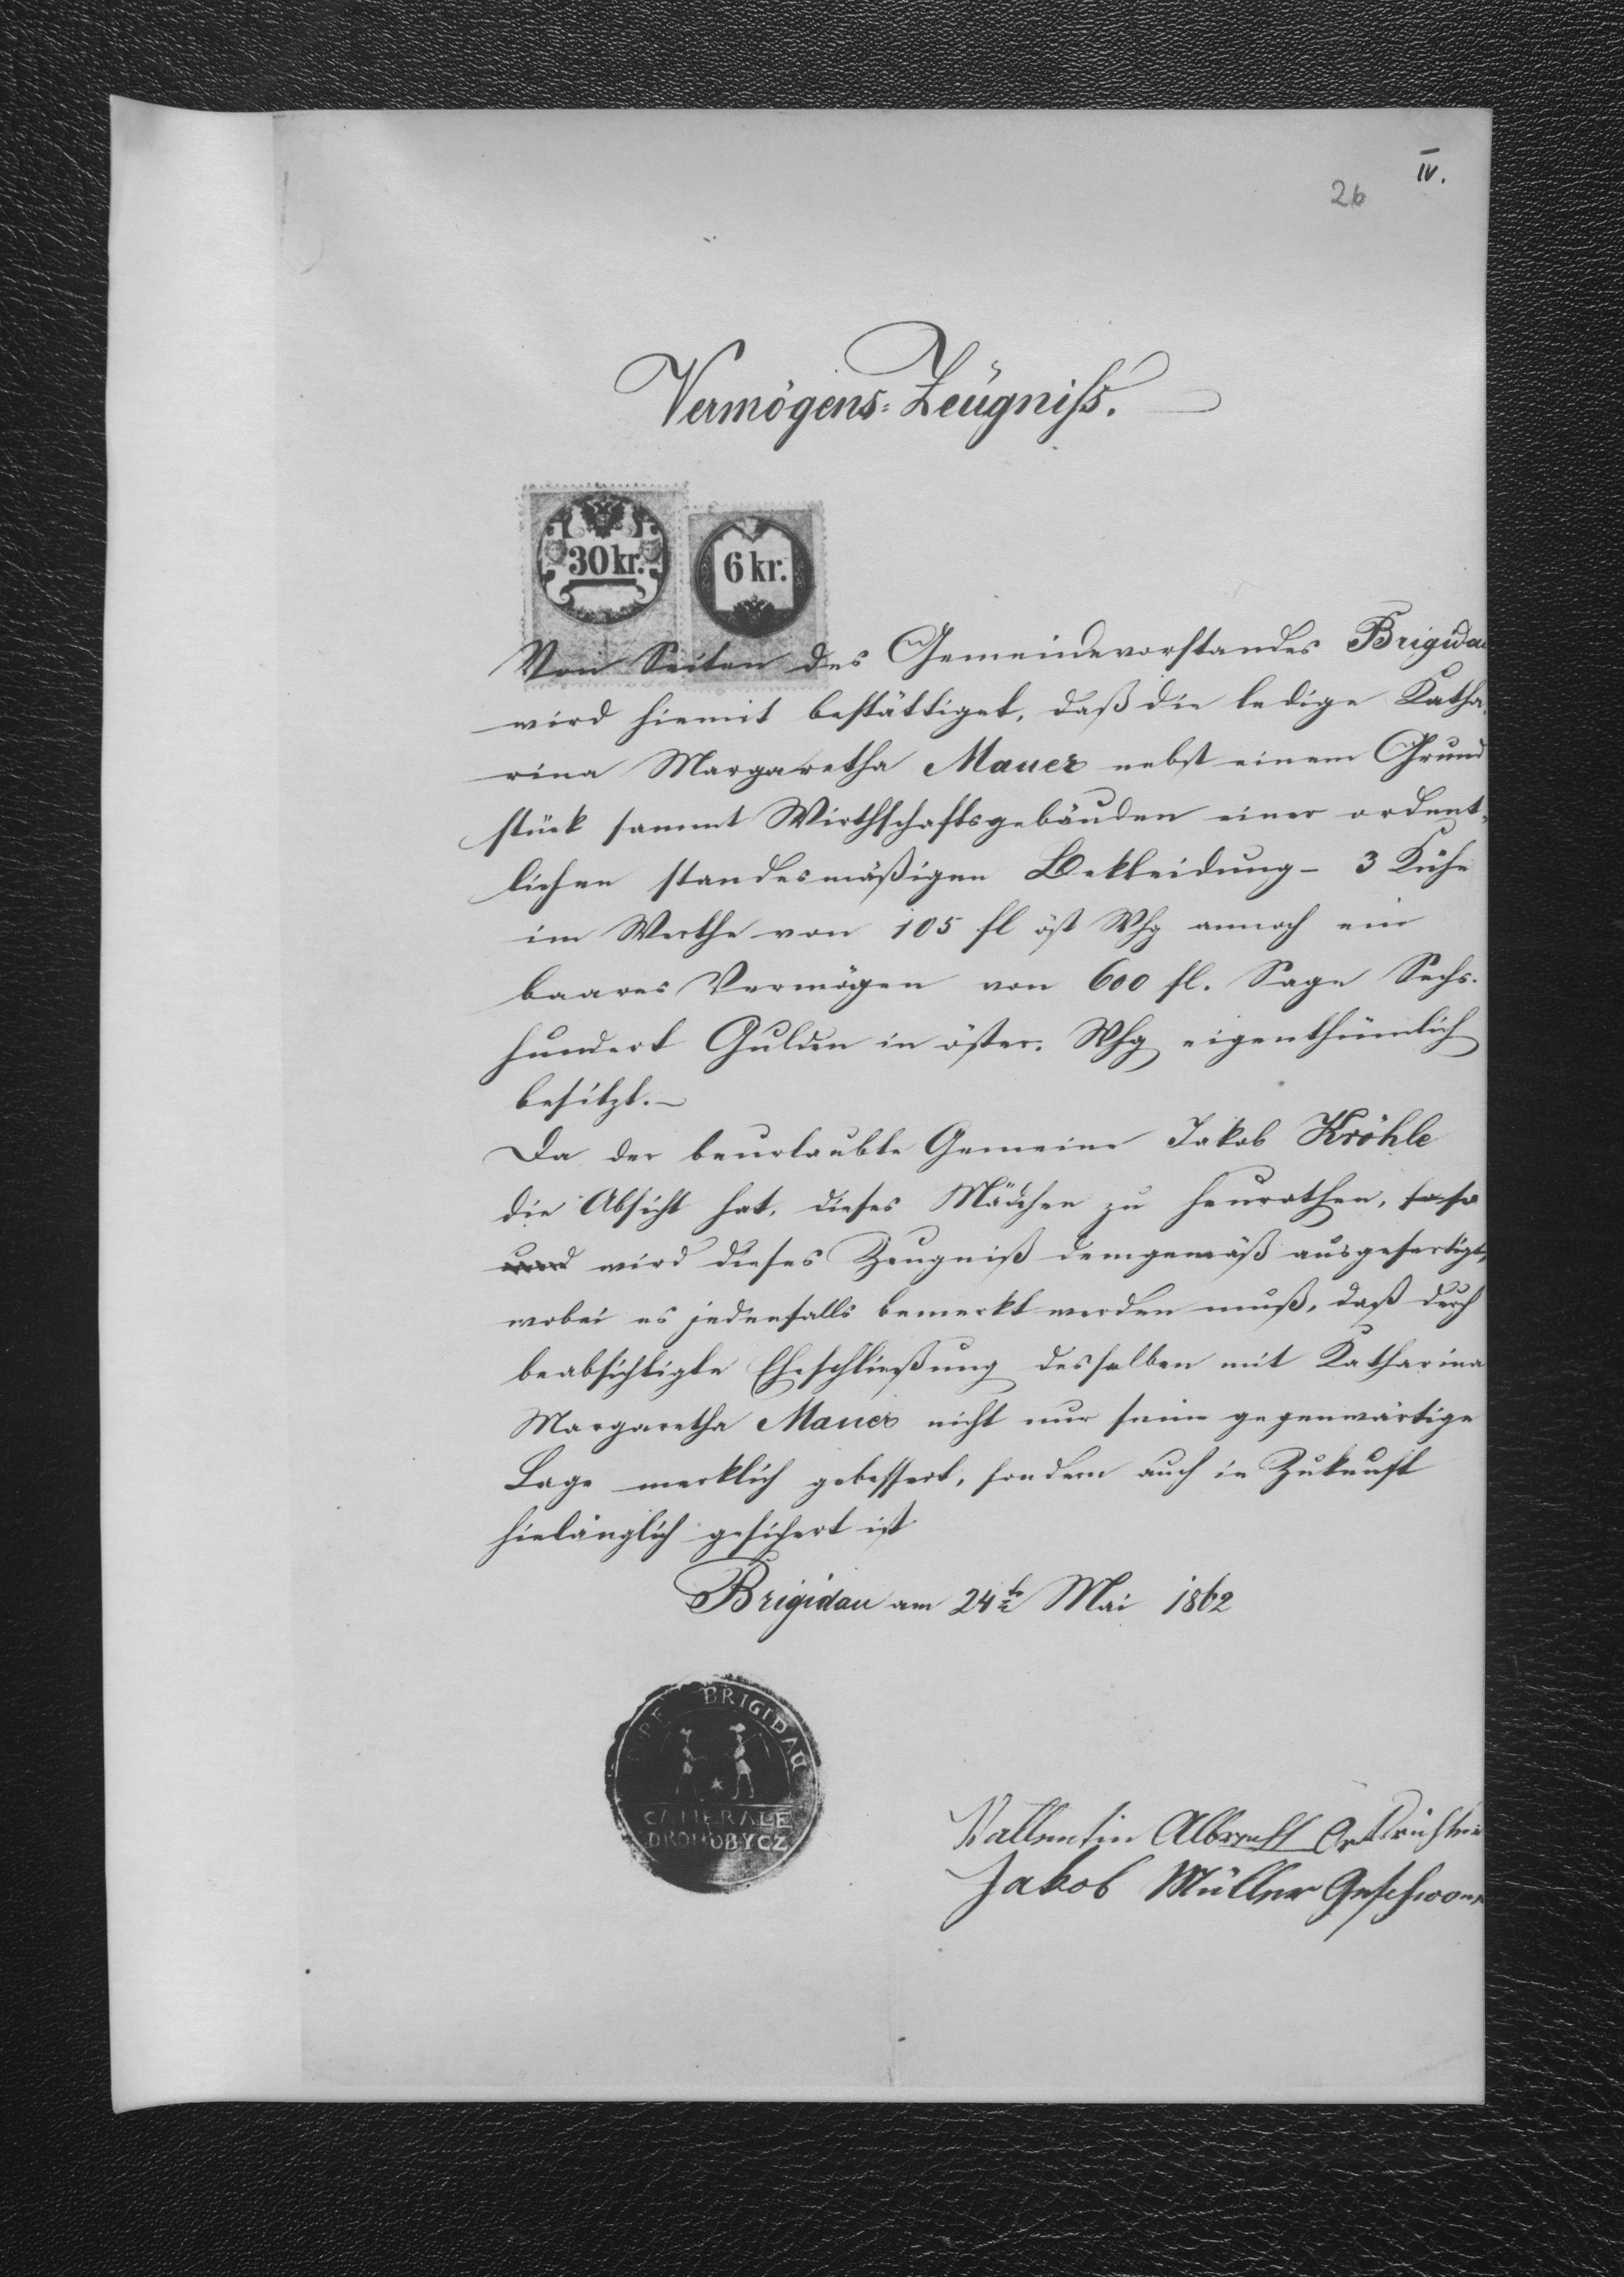 IV.
26
Vermögens=Zeügniß.
30 kr.
6 kr.
Von Seiten des Gemeindevorstandes Brigidau
wird hiemit bestättiget, daß die ledige Katha,
rina Margaretha Mauer nebst einem Grund
stück sammt Wirthschaftsgebäuden einer ordent,
lichen standesmäßigen Bekleidung - 3 Kühe
im Werthe von 105 fl öst Whg annoch ein
baares Vermögen von 600 fl. Sage Sechs-
hundert Gulden in öster. Whg eigenthümlich
besitzt. -
Da der beurlaubte Gemeine Jakob Kröhle
die Absicht hat, dieses Mädchen zu heurathen,
und wird dieses Zeugniß demgemäß ausgefertigt,
wobei es jedenfalls bemerkt werden muß, daß durch
beabsichtigte Eheschließung desselben mit Katharina
Margaretha Mauer nicht nur seine gegenwärtige
Lage merklich gebessert, sondern auch in Zukunft
hinlänglich gesichert ist
Brigidau am 24t Mai 1862
BRIGIDAU
CAMERALE
DROHOBYCZ
Vallentin Albrecht Ortsrichter
Jakob Müller Geschworn